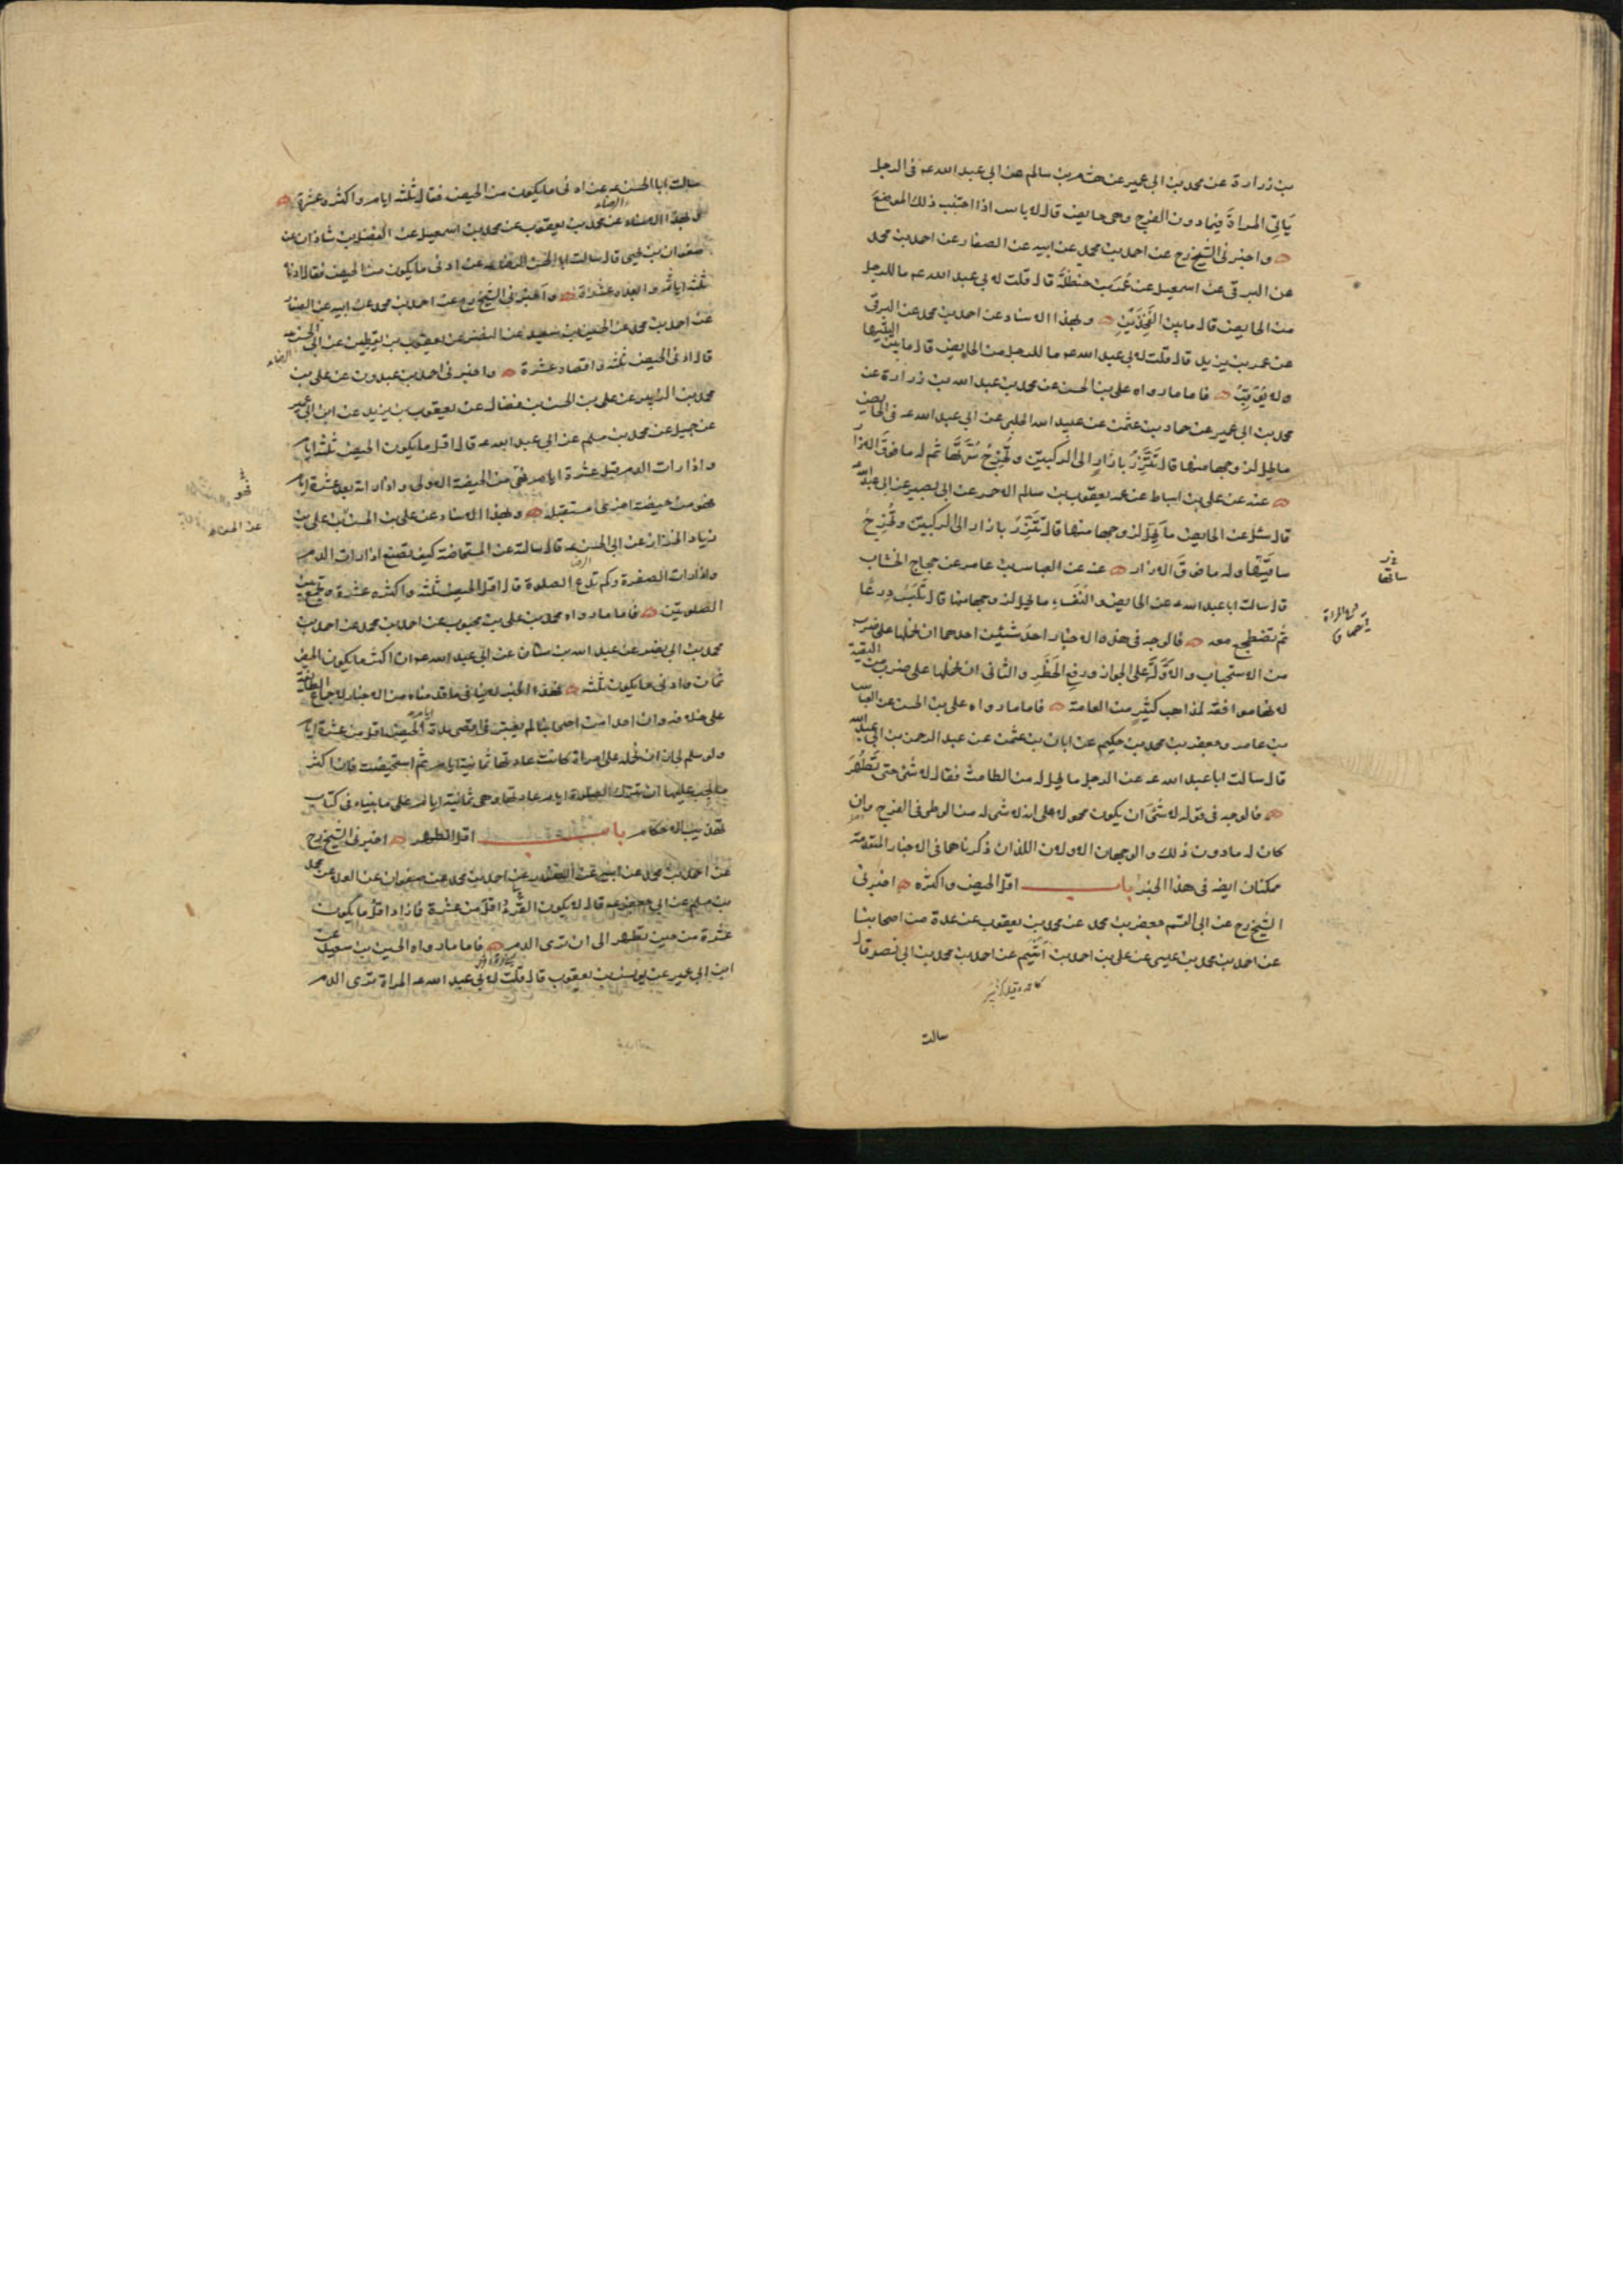 بن زرارة عن محمد بن ابى عمير عن هشام بن سالم عن ابى عبد الله عه فى الرجل
يَاتِى المراةَ فيما دون الفرج وهى حايض قال لا باس اذا اجتنب ذلك الموضعَ
واخبرنى الشيخ رح عن احمد بن محمد عن ابيه عن الصفار عن احمد بن محمد
عن البرقى عن اسمعيل عن عُمَرَ بن حنظلةَ قال قلت لابى عبد الله عه ما للرجل
من الحايض قال ما بين الفَخِذَيْنِ وبهذا الاسناد عن احمد بن محمد عن البرقى
عن عمر بن يزيد قال قلت لابى عبد الله عه ما للرجل من الحايض قال ما بين اليتيها
ولا يُوقِبُ فاما ما رواه على بن الحسن عن محمد بن عبد الله بن زرارة عن
محمد بن ابى عمير عن حماد بن عثمن عن عبيد الله الحلبى عن ابى عبد الله عه فى الحايض
ما يحل لزوجها منها قال تَتَّزِرُ بازارٍ الى الركبتين وتُخْرِجُ سُرَّتَها ثم له ما فوقَ الازار
عنه عن على بن اسباط عن عمه يعقوب بن سالم الاحمر عن ابى بصير عن ابى عبد الله
قال سئل عن الحايض ما يَحِلُّ لزوجها منها قال تَتَّزِرُ بازار الى الركبتين وتُخْرِجُ
ساقَيْها وله ما فوقَ الازار عنه عن العباس بن عامر عن حجاج الخشاب
قال سالت ابا عبد الله عه عن الحايض والنفساءِ ما يحل لزوجها منها قال تَلْبَسُ دِرعًا
ثم تضطجع معه فالوجه فى هذه الاخبار احد شيئين احدهما ان نحملها على ضرب
من الاستحباب والاوَّلةَ على الجواز ورفعِ الحَظَرِ والثانى ان نحملها على ضرب من التقية
لانها موافقة لمذاهب كثيرٍ من العامة فاما ما رواه على بن الحسن عن العباس
بن عامر وجعفر بن محمد بن حكيم عن ابان بن عثمن عن عبد الرحمن بن ابى عبد الله
قال سالت ابا عبد الله عه عن الرجل ما يحل له من الطامث فقال لا شئ حتى تَطْهُرَ
فالوجه فى قوله لا شئ ان يكون محمولا على انه لا شئ له من الوطى فى الفرج وان
كان له ما دون ذلك والوجهان الاولان اللذان ذكرناهما فى الاخبار المتقدمة
ممكنان ايضه فى هذا الخبر باب اقل الحيض واكثره اخبرنى
الشيخ رح عن ابى القسم جعفر بن محمد عن محمد بن يعقوب عن عدة من اصحابنا
عن احمد بن محمد بن عيسى عن على بن احمد بن اَشْيَم عن احمد بن محمد بن ابى نصر قال
سالت
ساقها
سالت ابا الحسن عه عن ادنى ما يكون من الحيض فقال ثلثة ايام واكثره عشرة
وبهذا الاسناد عن محمد بن يعقوب عن محمد بن اسمعيل عن الفضل بن شاذان عن
صفوان بن يحيى قال سالت ابا الحسن الرضا عه عن ادنى ما يكون من الحيض فقال ادناه
ثلثة ايام وابعده عشرة واخبرنى الشيخ رح عن احمد بن محمد عن ابيه عن الصفار
عن احمد بن محمد عن الحسين بن سعيد عن النضر عن يعقوب بن يقطين عن ابى الحسن عه
قال ادنى الحيض ثلثة واقصاه عشرة واخبرنى احمد بن عبدون عن على بن
محمد بن الزبير عن على بن الحسن بن فضال عن يعقوب بن يزيد عن ابن ابى عمير
عن جميل عن محمد بن مسلم عن ابى عبد الله عه قال اقل ما يكون الحيض ثلثة ايام
واذا رات الدم قبل عشرة ايام فهى من الحيضة الاولى واذا راته بعد عشرة ايام
فهو من حيضة اخرى مستقبلة وبهذا الاسناد عن على بن الحسن عن على بن
زياد الخزاز عن ابى الحسن عه قال سالته عن المستحاضة كيف تصنع اذا رات الدم
واذا رات الصفرة وكم تدع الصلوة قال اقل الحيض ثلثة واكثره عشرة وتجمع بين
الصلوتين فاما ما رواه محمد بن على بن محبوب عن احمد بن محمد عن احمد بن
محمد بن ابى نصر عن عبد الله بن سنان عن ابى عبد الله عه ان اكثر ما يكون الحيض
ثمان وادنى ما يكون ثلثة فهذا الخبر لا ينافى ما قدمناه من الاخبار لاجماع الطائفة
على خلافه وان احدا من اصحابنا لم يعتبر فى اقصى مدة الحيض اقل من عشرة ايام
ولو سلم لجاز ان نحمله على امراة كانت عادتها ثمانية ايام ثم استحيضت فان اكثر
ما يجب عليها ان تترك الصلوة ايام عادتها وهى ثمانية ايام على ما بيناه فى كتاب
تهذيب الاحكام باب اقل الطهر اخبرنى الشيخ رح
عن احمد بن محمد عن ابيه عن الصفار عن احمد بن محمد عن صفوان عن العلا عن محمد
بن مسلم عن ابى جعفر عه قال لا يكون القُرْءُ اقل من عشرة فما زاد اقل ما يكون
عشرة من حين تطهر الى ان ترى الدم فاما ما رواه الحسين بن سعيد عن
ابن ابى عمير عن يونس بن يعقوب قال قلت لابى عبد الله عه المراة ترى الدم